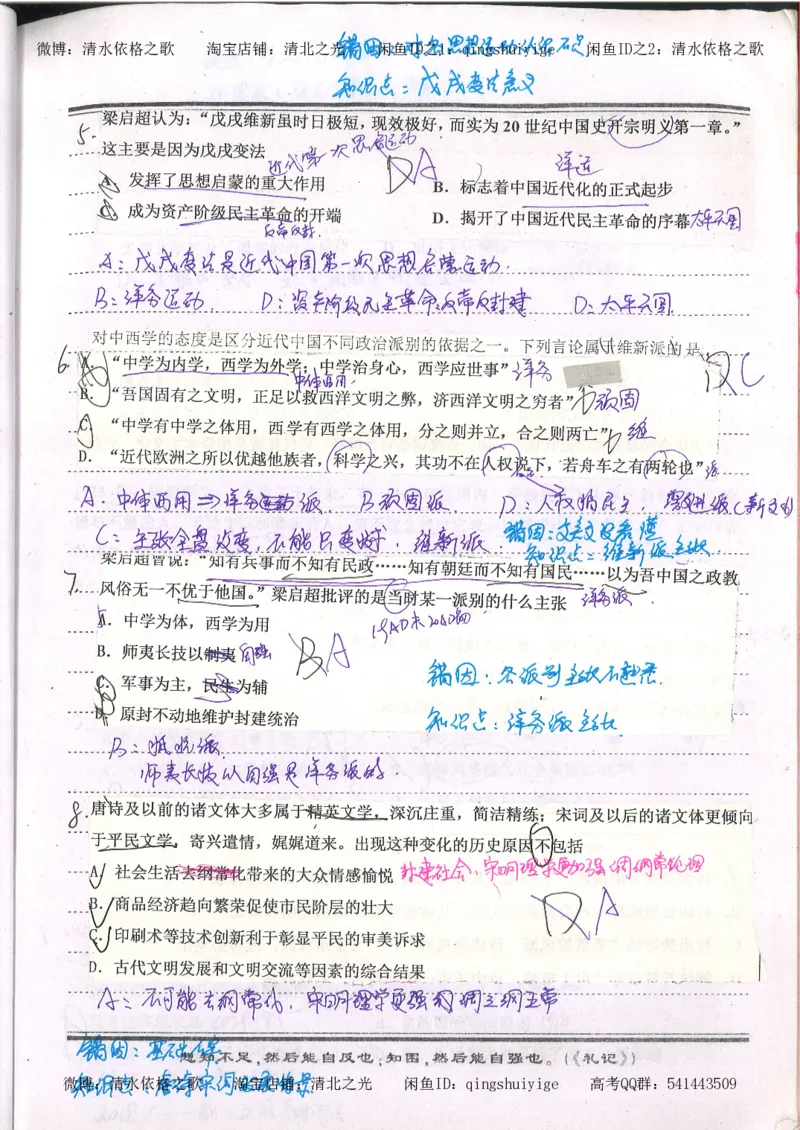 微博：清水依格之歌 淘宝店铺：清北之光 闲鱼ID之1：qingshuiyige 闲鱼ID之2：清水依格之歌
知识点：戊戌变法意义
5. 梁启超认为：“戊戌维新虽时日极短，现效极好，而实为20世纪中国史开宗明义第一章。”
这主要是因为戊戌变法
近代第一次思启运动
DA
洋运
A. 发挥了思想启蒙的重大作用 B. 标志着中国近代化的正式起步
C. 成为资产阶级民主革命的开端 D. 揭开了中国近代民主革命的序幕 太平天国
反帝反封
A：戊戌变法是近代中国第一次思想启蒙运动.
B：洋务运动 D：资产阶级民主革命：反帝反封建 D：太平天国
对中西学的态度是区分近代中国不同政治派别的依据之一。下列言论属于维新派的是
6. A. “中学为内学，西学为外学；中学治身心，西学应世事” 洋务
DC
中体西用
B. “吾国固有之文明，正足以救西洋文明之弊，济西洋文明之穷者” 顽固
C. “中学有中学之体用，西学有西学之体用，分之则并立，合之则两亡” 维
D. “近代欧洲之所以优越他族者，科学之兴，其功不在人权说下，若舟车之有两轮也”
A：中体西用⇒洋务运动派 B：顽固派 D：人权指民主，激进派（新文化）
C：主张全盘改变，不能只变时，维新派
错因：文言文看懂
知识点：维新派主张
梁启超曾说：“知有兵事而不知有民政……知有朝廷而不知有国民……以为吾中国之政教
7. 风俗无一不优于他国。”梁启超批评的是当时某一派别的什么主张 洋务派
A. 中学为体，西学为用
B. 师夷长技以制夷 自强
BA
C. 军事为主，民生为辅
D. 原封不动地维护封建统治
错因：各派别主张不熟悉
知识点：洋务派主张
B：抵抗派
师夷长技以自强是洋务派的
8. 唐诗及以前的诸文体大多属于精英文学，深沉庄重，简洁精练；宋词及以后的诸文体更倾向
于平民文学，寄兴遣情，娓娓道来。出现这种变化的历史原因不包括
A. 社会生活去纲常化带来的大众情感愉悦 封建社会，宋明理学更加强调纲常伦理
B. 商品经济趋向繁荣促使市民阶层的壮大
DA
C. 印刷术等技术创新利于彰显平民的审美诉求
D. 古代文明发展和文明交流等因素的综合结果
A：不可能去纲常化，宋明理学更强调三纲五常
错因：基础
知不足，然后能自反也；知困，然后能自强也。（《礼记》）
微博：清水依格之歌 淘宝店铺：清北之光 闲鱼ID：qingshuiyige 高考QQ群：541443509